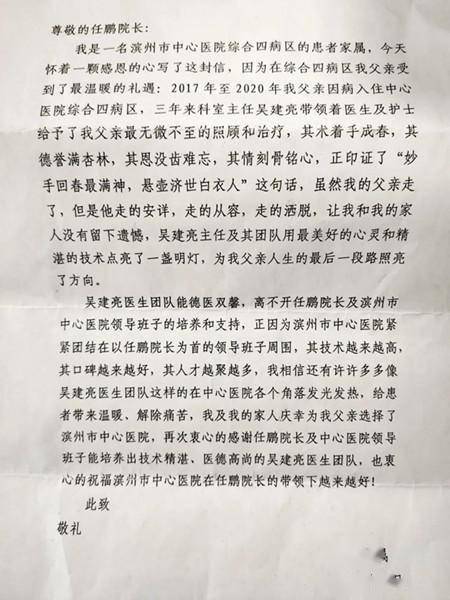 尊敬的任鹏院长:
我是一名滨州市中心医院综合四病区的患者家属,今天
怀着一颗感恩的心写了这封信,因为在综合四病区我父亲受
到了最温暖的礼遇:2017年至2020年我父亲因病入住中心
医院综合四病区,三年来科室主任吴建亮带领着医生及护士
给予了我父亲最无微不至的照顾和治疗,其术着手成春,其
德誉满杏林,其恩没齿难忘,其情刻骨铭心,正印证了“妙
手回春最满神,悬壶济世白衣人”这句话,虽然我的父亲走
了,但是他走的安详,走的从容,走的洒脱,让我和我的家
人没有留下遗憾,吴建亮主任及其团队用最美好的心灵和精
湛的技术点亮了一盏明灯,为我父亲人生的最后一段路照亮
了方向。
吴建亮医生团队能德医双馨,离不开任鹏院长及滨州市
中心医院领导班子的培养和支持,正因为滨州市中心医院紧
紧团结在以任鹏院长为首的领导班子周围,其技术越来越高,
其口碑越来越好,其人才越聚越多,我相信还有许许多多像
吴建亮医生团队这样的在中心医院各个角落发光发热,给患
者带来温暖、解除痛苦,我及我的家人庆幸为我父亲选择了
滨州市中心医院,再次衷心的感谢任鹏院长及中心医院领导
班子能培养出技术精湛、医德高尚的吴建亮医生团队,也衷
心的祝福滨州市中心医院在任鹏院长的带领下越来越好!
此致
敬礼